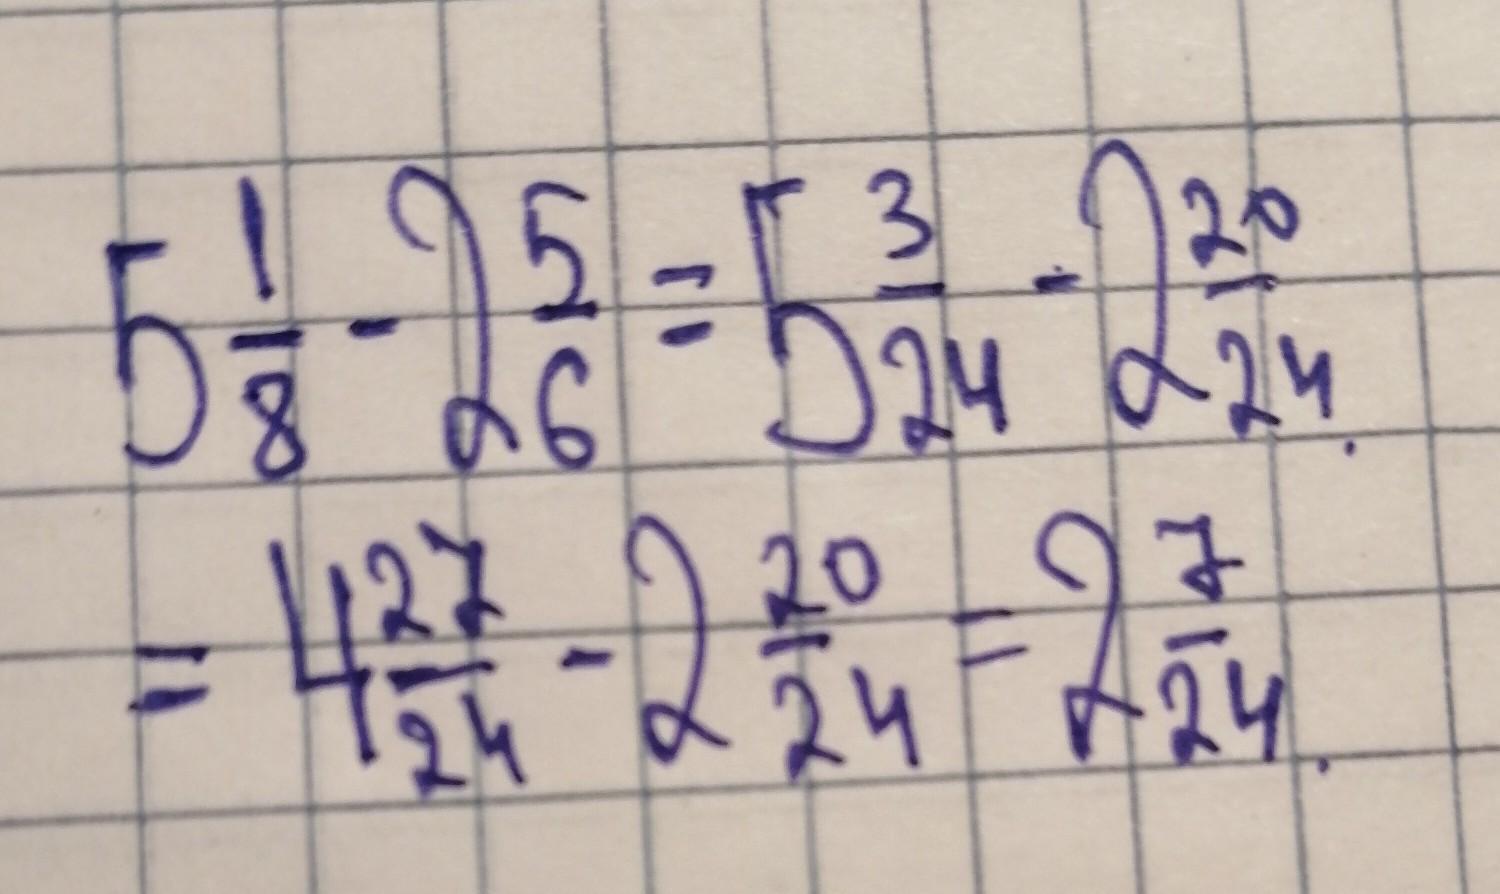 5 1/8 - 2 5/6 = 5 3/24 - 2 20/24.
= 4 27/24 - 2 20/24 = 2 7/24.